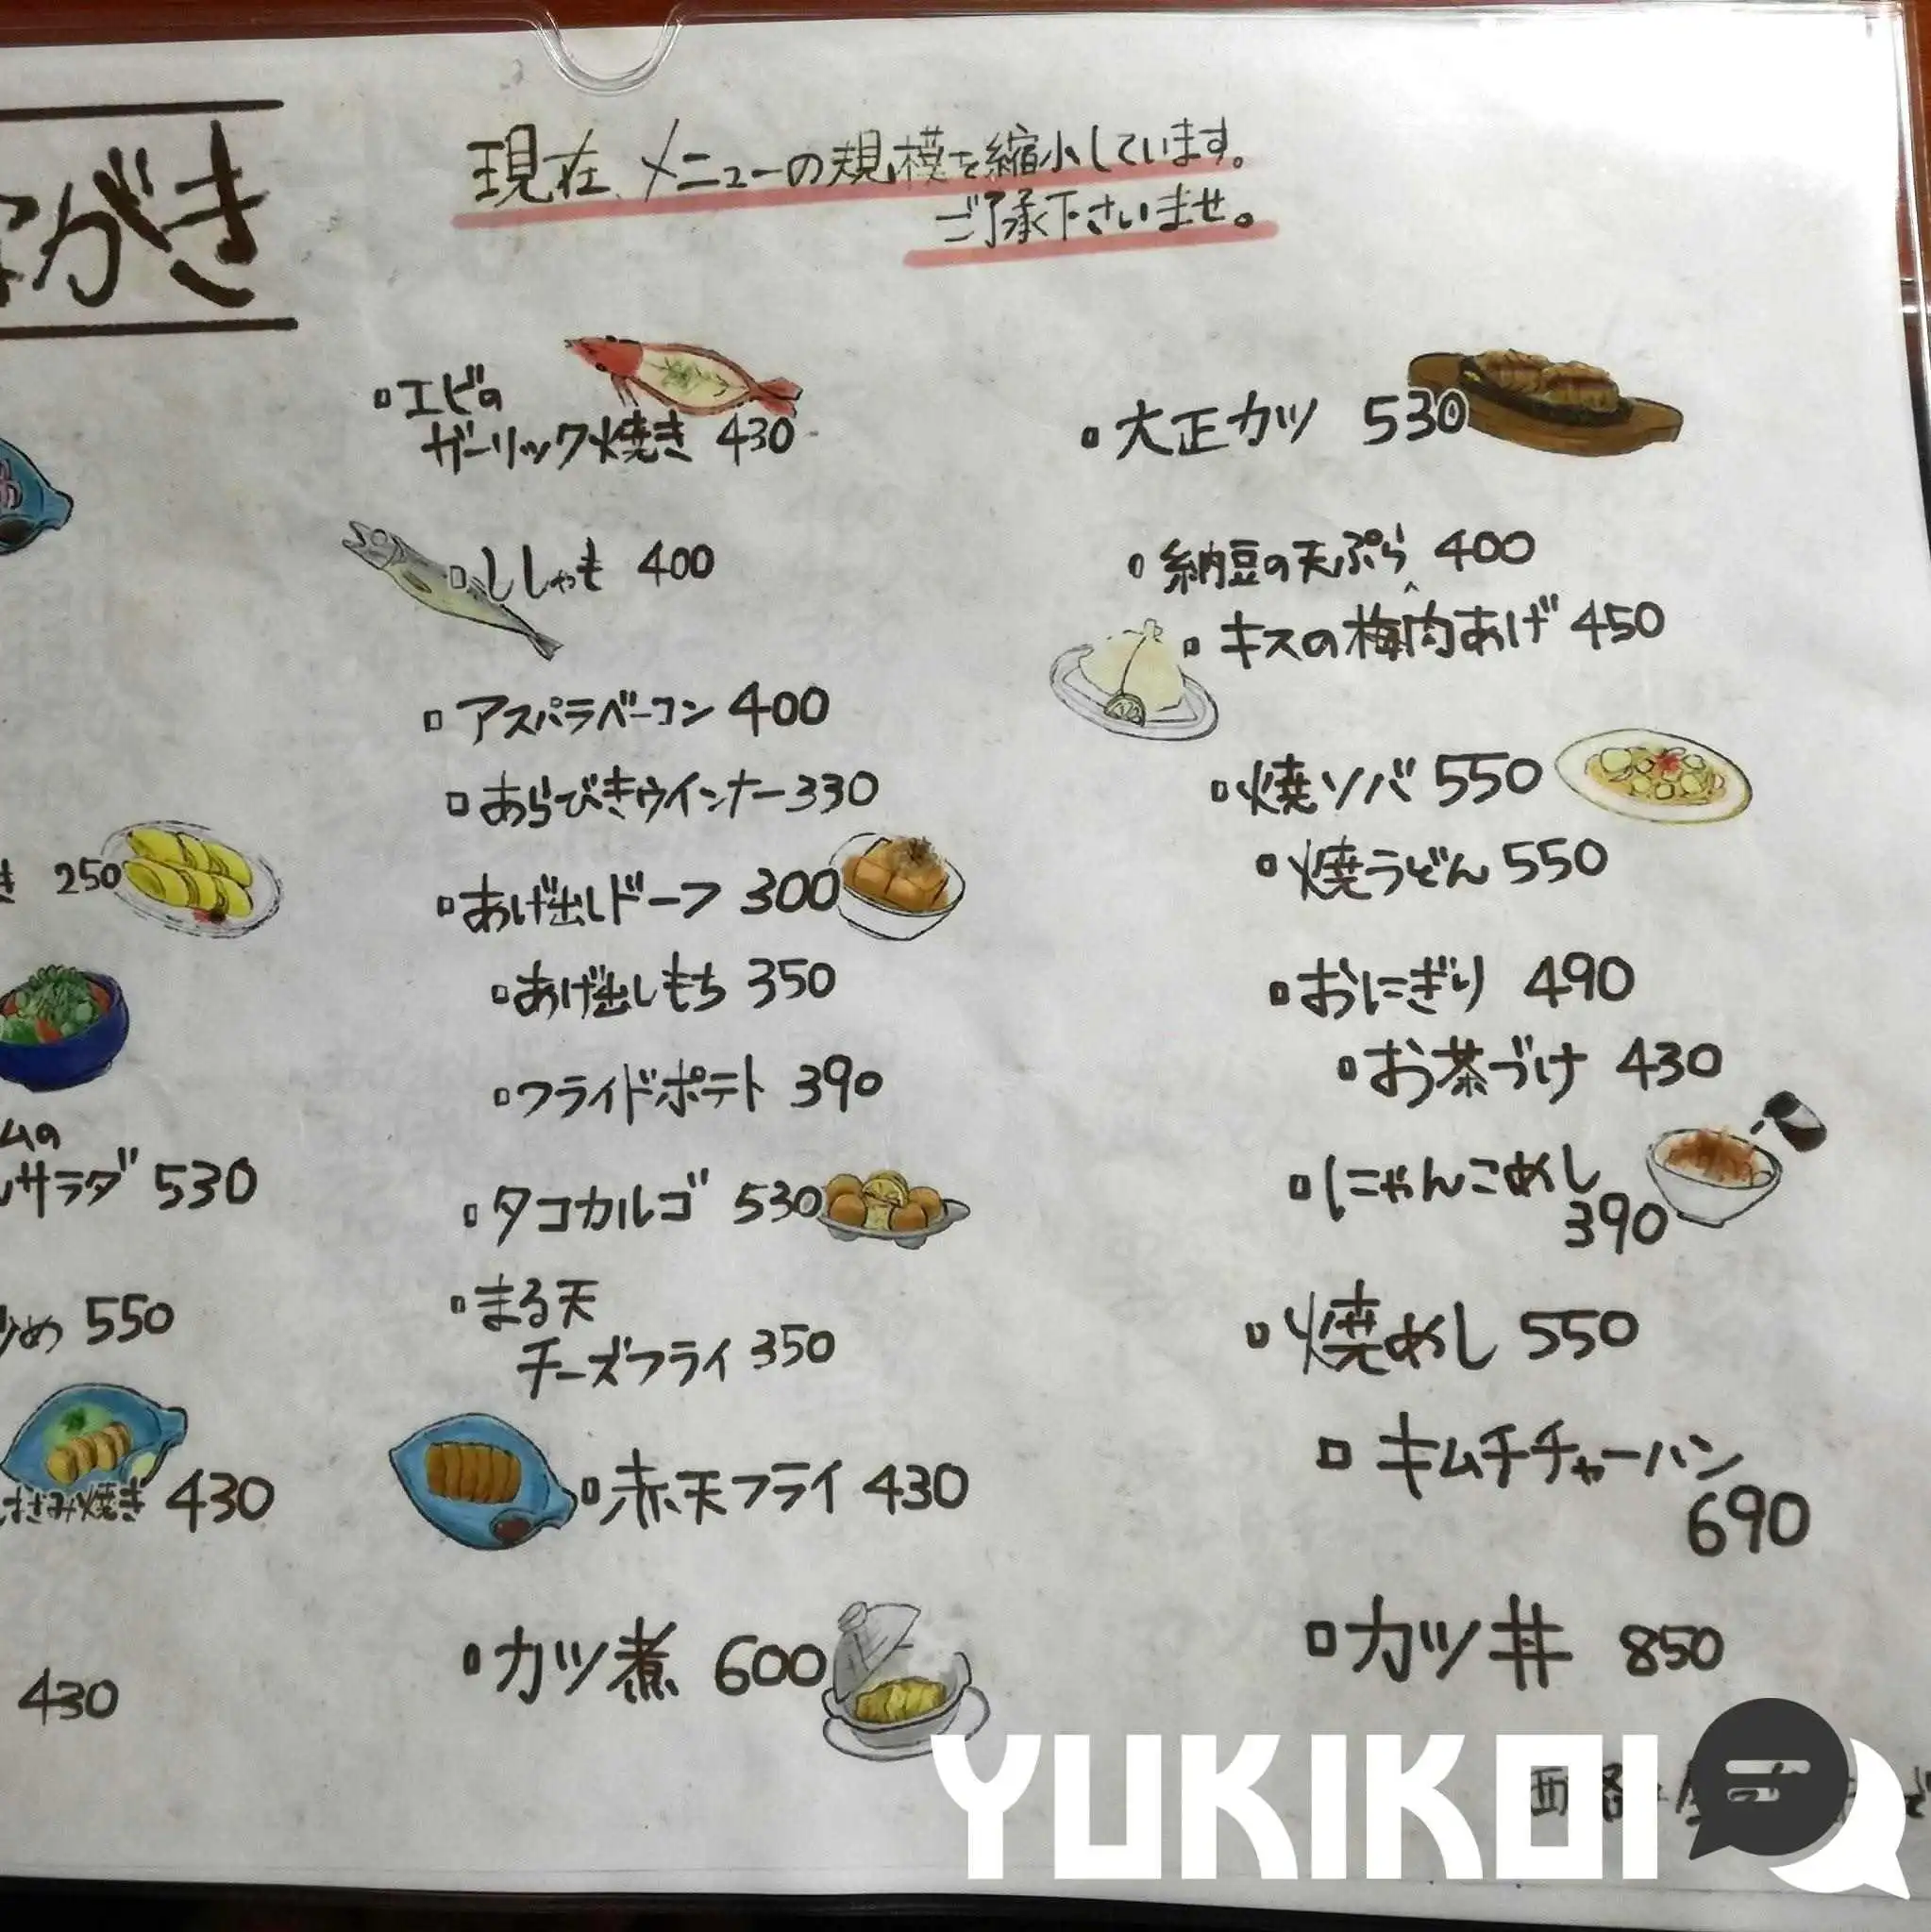 ながき
現在、メニューの規模を縮小しています。
ご了承下さいませ。
き 250
ムの
サラダ 530
炒め 550
はさみ焼き 430
430
エビの
ガーリック焼き 430
ししゃも 400
アスパラベーコン 400
あらびきウインナー 330
あげ出しドーフ 300
あげ出しもち 350
フライドポテト 390
タコカルゴ 530
まる天
チーズフライ 350
赤天フライ 430
カツ煮 600
大正カツ 530
納豆の天ぷら 400
キスの梅肉あげ 450
焼ソバ 550
焼うどん 550
おにぎり 490
お茶づけ 430
にゃんこめし
390
焼めし 550
キムチチャーハン
690
カツ丼 850
YUKIKOI